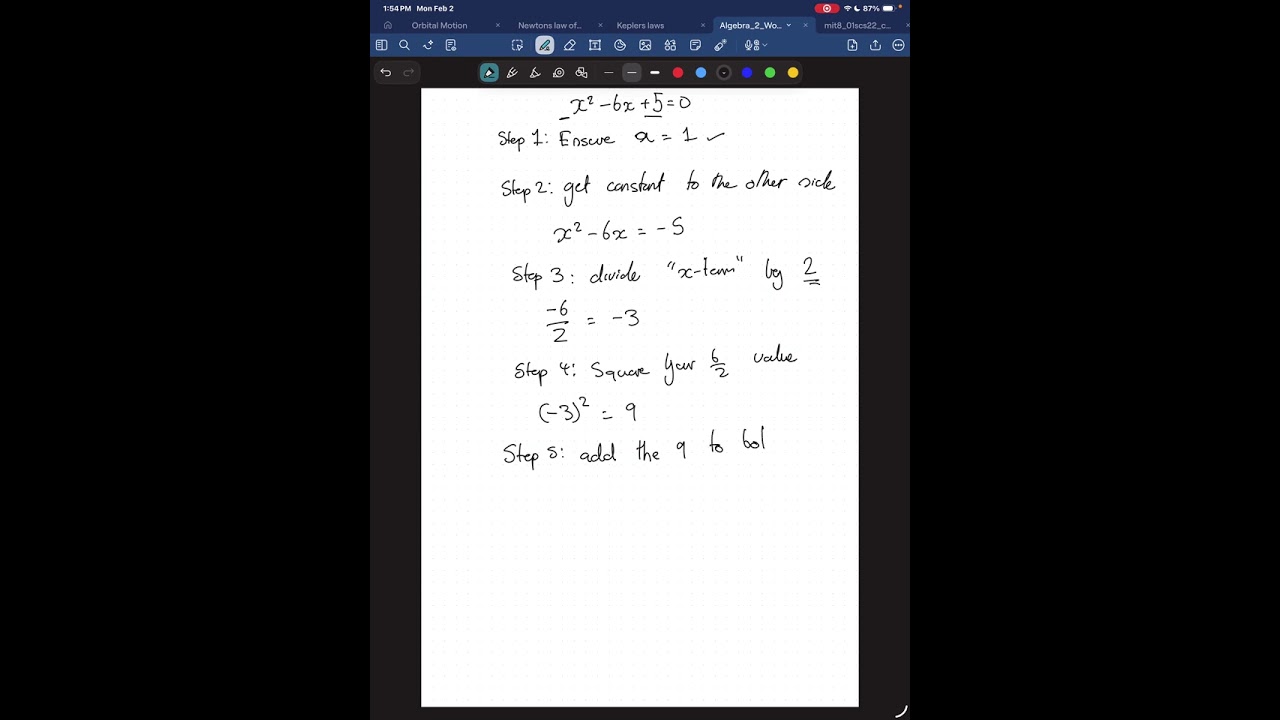 1:54 PM Mon Feb 2 87%
Orbital Motion Newtons law of... Keplers laws Algebra_2_Wo... mit8_01scs22_c...
x² - 6x + 5 = 0
Step 1: Ensure a = 1 ✓
Step 2: get constant to the other side
x² - 6x = -5
Step 3: divide "x-term" by 2
-6/2 = -3
Step 4: Square your 6/2 value
(-3)² = 9
Step 5: add the 9 to bot